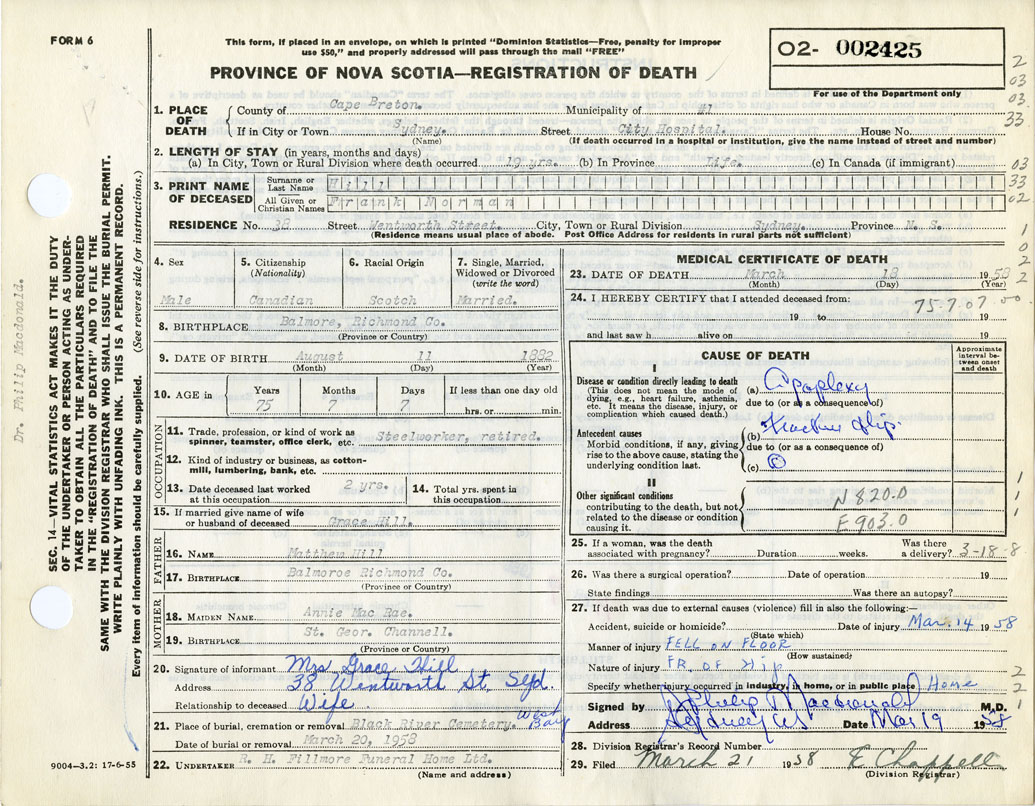 FORM 6
This form, if placed in an envelope, on which is printed "Dominion Statistics—Free, penalty for improper
use $50," and properly addressed will pass through the mail "FREE"
PROVINCE OF NOVA SCOTIA—REGISTRATION OF DEATH
02- 002425
For use of the Department only
2
03
03
33
1. PLACE OF DEATH
County of Cape Breton. Municipality of #1
If in City or Town Sydney. Street City Hospital. House No.
(Name) (If death occurred in a hospital or institution, give the name instead of street and number)
2. LENGTH OF STAY (in years, months and days)
(a) In City, Town or Rural Division where death occurred 19 yrs. (b) In Province Life. (c) In Canada (if immigrant) 03
3. PRINT NAME OF DECEASED
Surname or Last Name Hill 33
All Given or Christian Names Frank Norman 02
RESIDENCE No. 38 Street Wentworth Street. City, Town or Rural Division Sydney. Province N. S. 1
(Residence means usual place of abode. Post Office Address for residents in rural parts not sufficient)
0
2
2
4. Sex Male
5. Citizenship (Nationality) Canadian
6. Racial Origin Scotch
7. Single, Married, Widowed or Divorced (write the word) Married.
8. BIRTHPLACE Balmore, Richmond Co.
(Province or Country)
9. DATE OF BIRTH August 11 1882
(Month) (Day) (Year)
10. AGE in Years 75 Months 7 Days 7 If less than one day old hrs. or min.
OCCUPATION
11. Trade, profession, or kind of work as spinner, teamster, office clerk, etc. Steelworker, retired.
12. Kind of industry or business, as cotton-mill, lumbering, bank, etc.
13. Date deceased last worked at this occupation 2 yrs. 14. Total yrs. spent in this occupation
15. If married give name of wife or husband of deceased Grace Hill.
FATHER
16. NAME Matthew Hill
17. BIRTHPLACE Balmoroe Richmond Co.
(Province or Country)
MOTHER
18. MAIDEN NAME Annie Mac Rae.
19. BIRTHPLACE St. Geor. Channell.
(Province or Country)
20. Signature of informant Mrs Grace Hill
Address 38 Wentworth St, Syd.
Relationship to deceased Wife
21. Place of burial, cremation or removal Black River Cemetery. West Bay
Date of burial or removal March 20, 1958
22. UNDERTAKER R. H. Fillmore Funeral Home Ltd.
(Name and address)
MEDICAL CERTIFICATE OF DEATH
23. DATE OF DEATH March 18 1958
(Month) (Day) (Year)
24. I HEREBY CERTIFY that I attended deceased from: 75-7-07-00
19 to 19
and last saw h alive on 19
CAUSE OF DEATH
Approximate interval between onset and death
I
Disease or condition directly leading to death
(This does not mean the mode of
dying, e.g., heart failure, asthenia,
etc. It means the disease, injury, or
complication which caused death.)
(a) Apoplexy
due to (or as a consequence of)
Antecedent causes
Morbid conditions, if any, giving
rise to the above cause, stating the
underlying condition last.
(b) Fracture of hip.
due to (or as a consequence of)
(c)
II
Other significant conditions
contributing to the death, but not
related to the disease or condition
causing it.
N 820.0
E 903.0
1
1
1
25. If a woman, was the death associated with pregnancy? Duration weeks. Was there a delivery? 3-18-8
26. Was there a surgical operation? Date of operation 19
State findings Was there an autopsy?
27. If death was due to external causes (violence) fill in also the following:—
Accident, suicide or homicide? Date of injury Mar. 14 1958
(State which)
Manner of injury FELL ON FLOOR
(How sustained)
Nature of injury FR. OF Hip
Specify whether injury occurred in industry, in home, or in public place Home
2
2
1
Signed by Philip Macdonald M.D.
Address Sydney NS Date Mar 19 1958
28. Division Registrar's Record Number
29. Filed March 21 1958 E Chappell
(Division Registrar)
9004—3.2: 17-6-55
Dr. Philip Macdonald.
SEC. 14—VITAL STATISTICS ACT MAKES IT THE DUTY
OF THE UNDERTAKER OR PERSON ACTING AS UNDER-
TAKER TO OBTAIN ALL THE PARTICULARS REQUIRED
IN THE "REGISTRATION OF DEATH" AND TO FILE THE
SAME WITH THE DIVISION REGISTRAR WHO SHALL ISSUE THE BURIAL PERMIT.
WRITE PLAINLY WITH UNFADING INK. THIS IS A PERMANENT RECORD.
Every item of information should be carefully supplied. (See reverse side for instructions.)